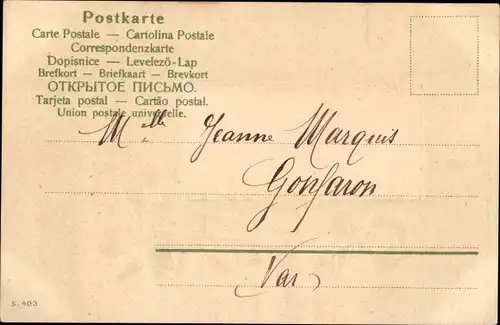 Postkarte
Carte Postale — Cartolina Postale
Correspondenzkarte
Dopisnice — Levelező-Lap
Brefkort — Briefkaart — Brevkort
ОТКРЫТОЕ ПИСЬМО.
Tarjeta postal — Cartão postal.
Union postale universelle.
Melle Jeanne Marquis
Gonfaron
Var
S. 403